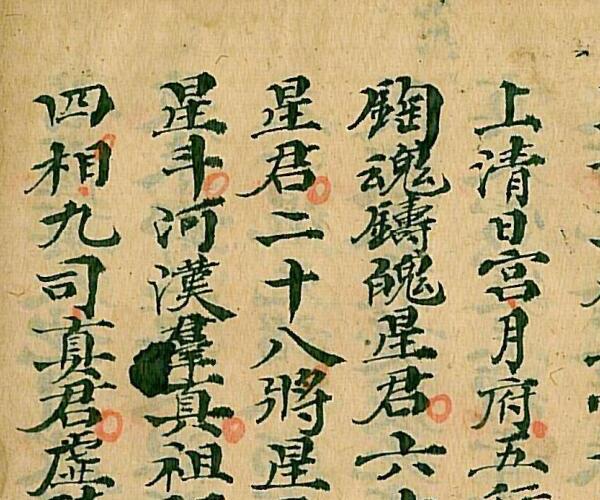 上清日宮月府五
鋾魂鑄魄星君六
星君二十八將星
星斗河漢羣真祖
四相九司真君虚